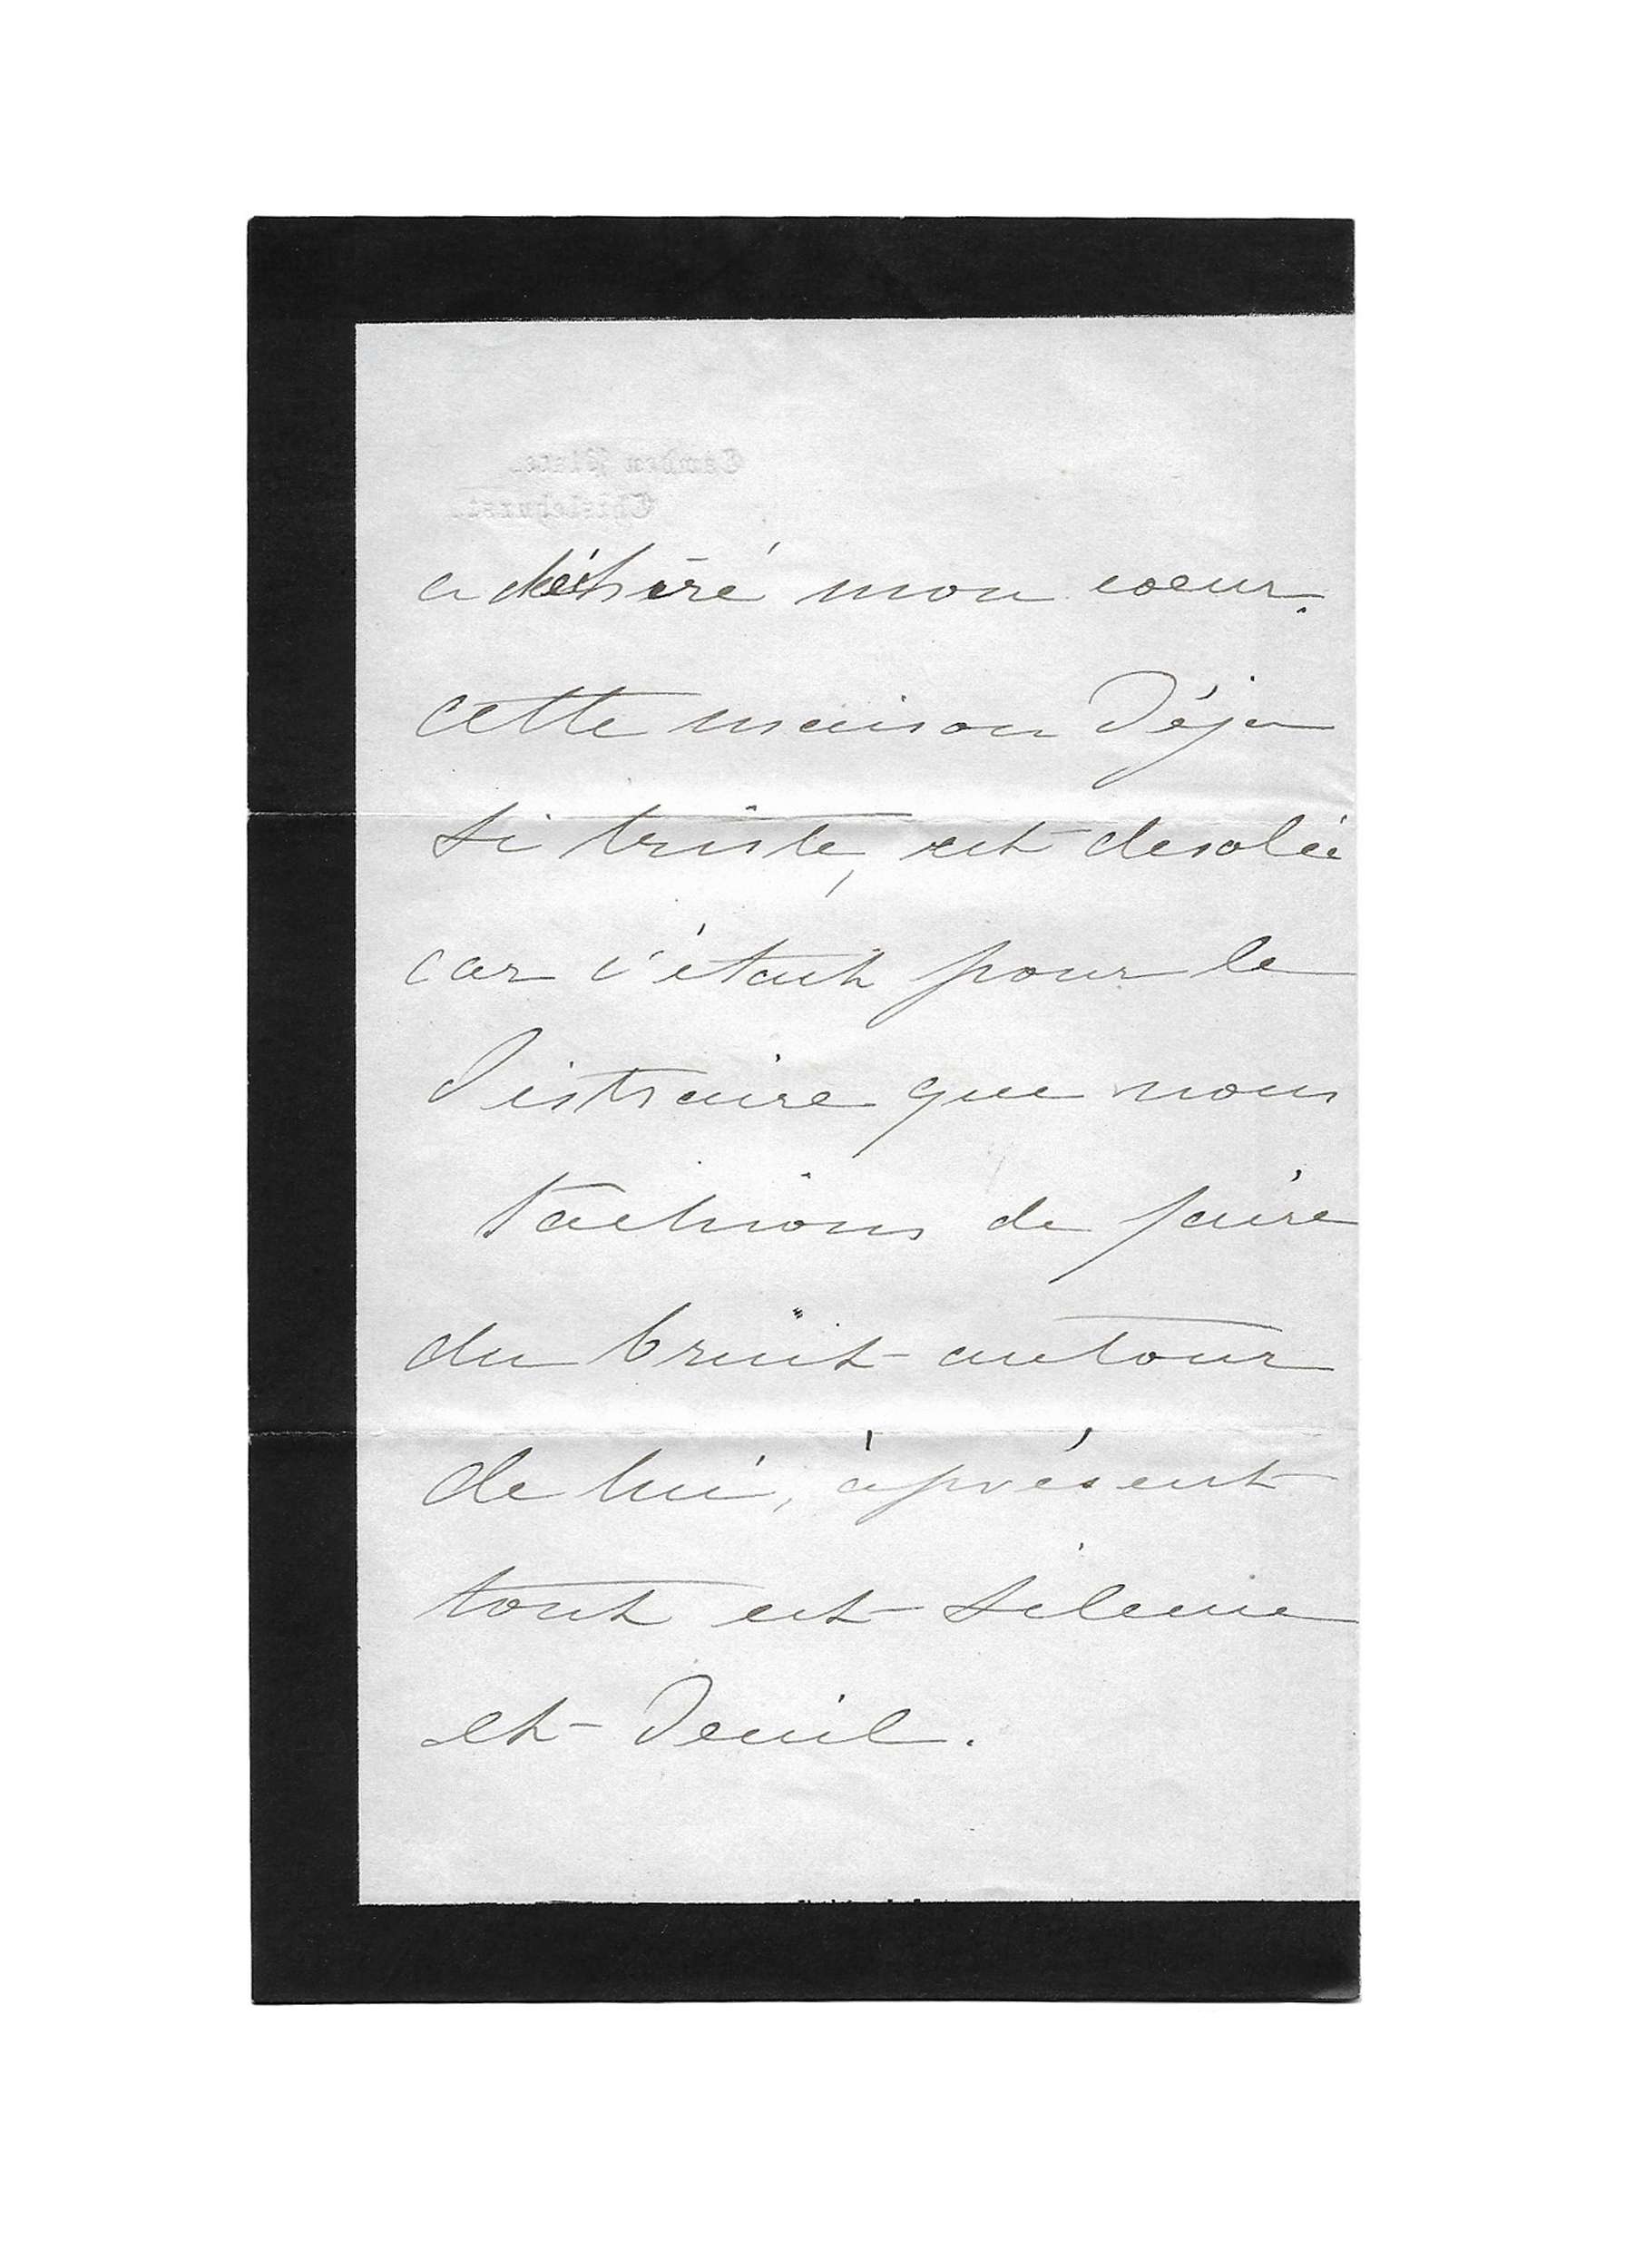 Camden Place.
Chislehurst.
a déchiré mon coeur.
cette maison déja
si triste, est desolée
car c'était pour le
distraire que nous
tachions de faire
du bruit autour
de lui, àprésent
tout est silence
et deuil.